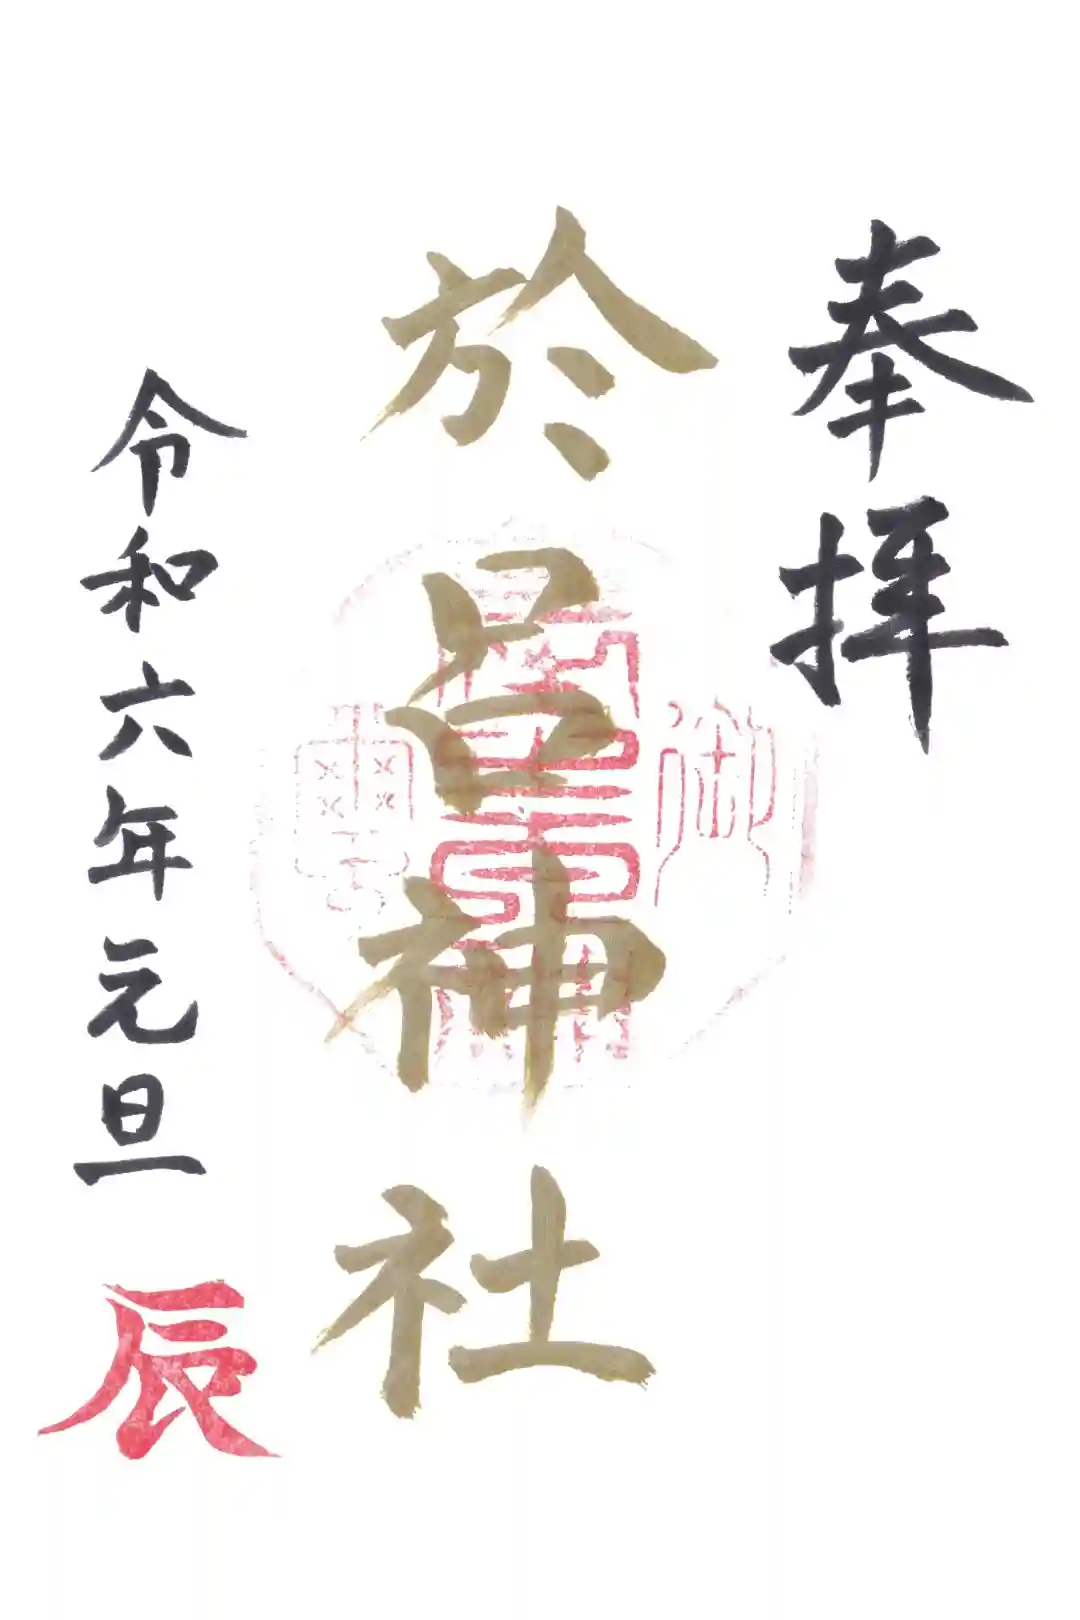 奉拝
於呂神社
令和六年元旦
辰